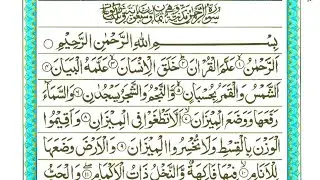 بِسْمِ اللهِ الرَّحْمٰنِ الرَّحِيْمِ
اَلرَّحْمٰنُ ۙ عَلَّمَ الْقُرْاٰنَ ؕ خَلَقَ الْاِنْسَانَ ۙ عَلَّمَهُ الْبَيَانَ
اَلشَّمْسُ وَالْقَمَرُ بِحُسْبَانٍ ۪ وَّالنَّجْمُ وَالشَّجَرُ يَسْجُدٰنِ وَالسَّمَآءَ
رَفَعَهَا وَوَضَعَ الْمِيْزَانَ ۙ اَلَّا تَطْغَوْا فِى الْمِيْزَانِ وَاَقِيْمُوا
الْوَزْنَ بِالْقِسْطِ وَلَا تُخْسِرُوا الْمِيْزَانَ وَالْاَرْضَ وَضَعَهَا
لِلْاَنَامِ ۙ فِيْهَا فَاكِهَةٌ وَّالنَّخْلُ ذَاتُ الْاَكْمَامِ ۖ وَالْحَبُّ